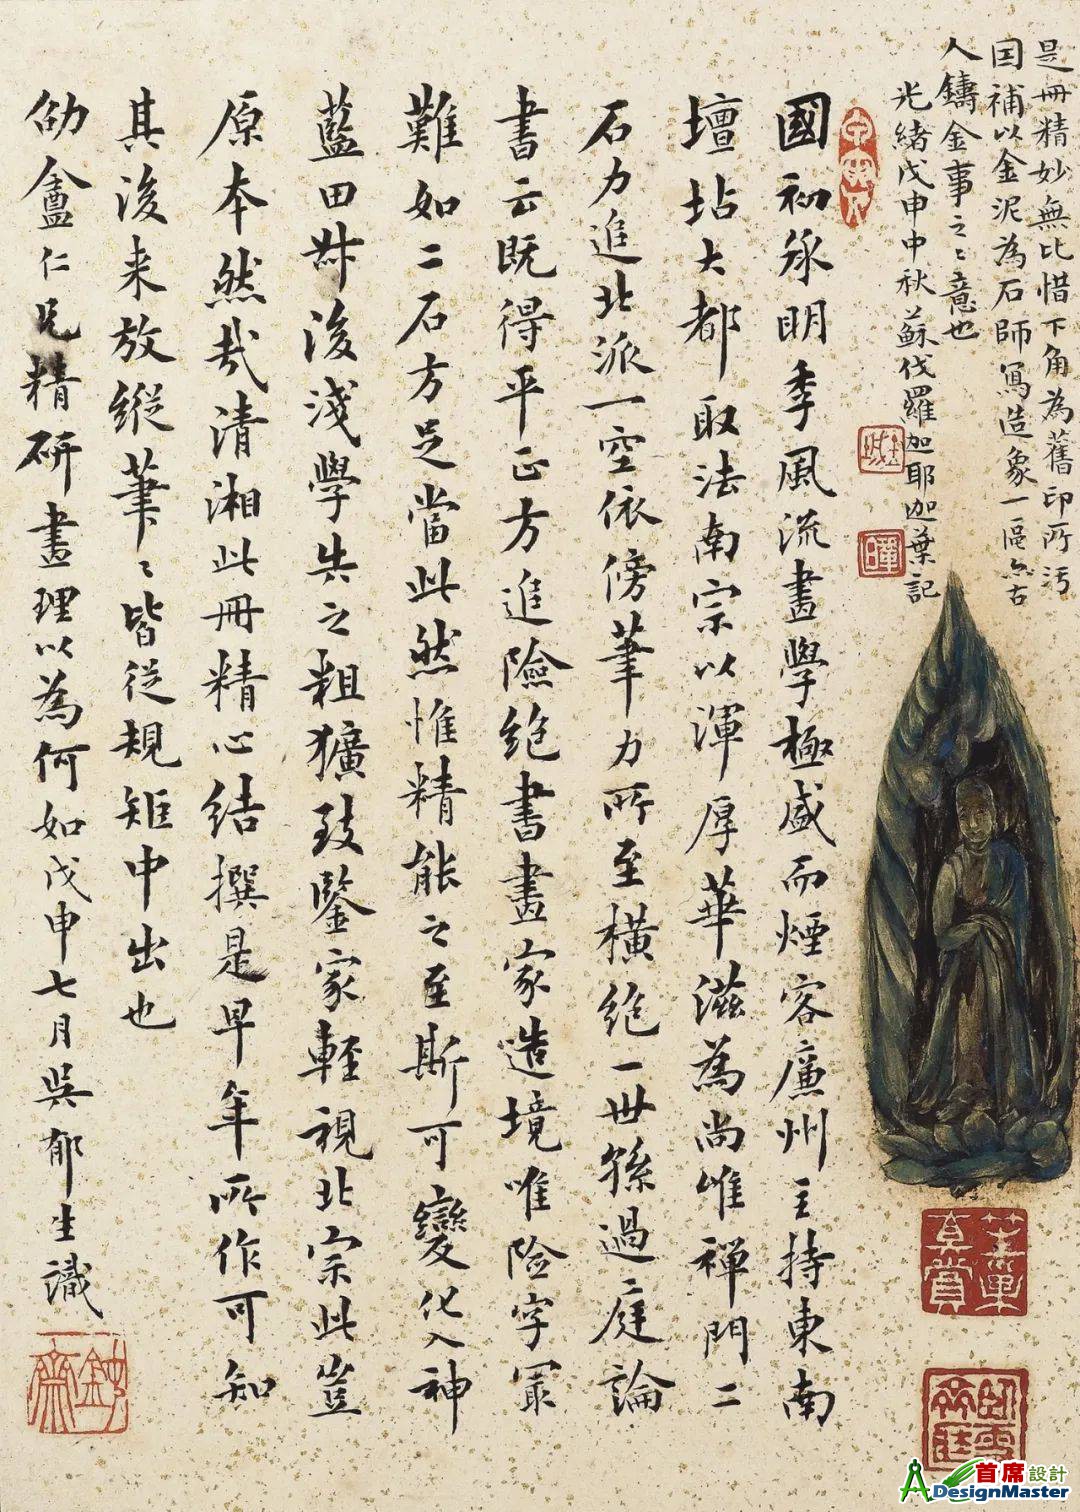 是冊精妙無比惜下角為舊印所污
因補以金泥為石師寫造象一區亦古
人鑄金事之之意也
光緒戊申中秋蘇伐羅迦耶迦葉記
國初承明季風流畫學極盛而煙客廉州主持東南
壇坫大都取法南宗以渾厚華滋為尚惟禪門二
石力追北派一空依傍筆力所至橫絕一世孫過庭論
書云既得平正方追險絕書畫家造境唯險字最
難如二石方足當此然惟精能之至斯可變化入神
藍田叔後淺學失之粗獷致鑒家輕視北宗此豈
原本然哉清湘此冊精心結撰是早年所作可知
其後來放縱筆筆皆從規矩中出也
劬盦仁兄精研畫理以為何如戊申七月吳郁生識
真賞
鈍齋
首席設計
DesignMaster